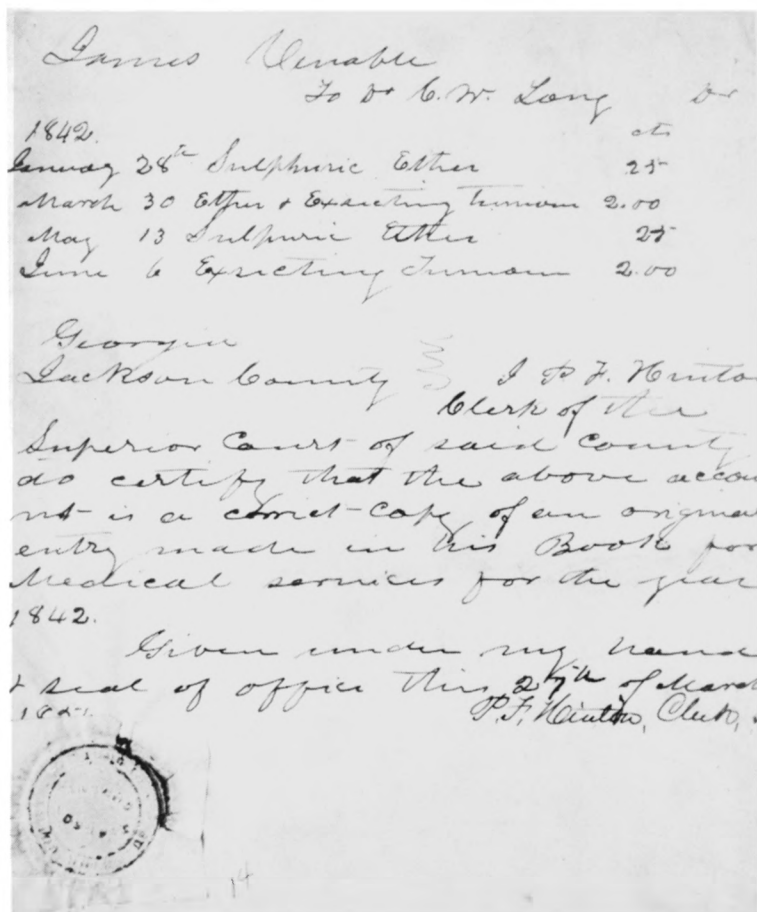 James Venable
To Dr C. W. Long Dr
1842. cts
January 28th Sulphuric Ether 25
March 30 Ether & Exsecting tumour 2.00
May 13 Sulpuric Ether 25
June 6 Exsecting Tumour 2.00
Georgia
Jackson County I P. F. Hinto
Clerk of the
Superior Court of said County
do certify that the above accou
nt is a correct copy of an origina
entry made in his Book for
Medical services for the year
1842.
Given under my hand
& seal of office this 27th of March
P. F. Hinton, Clerk,
14